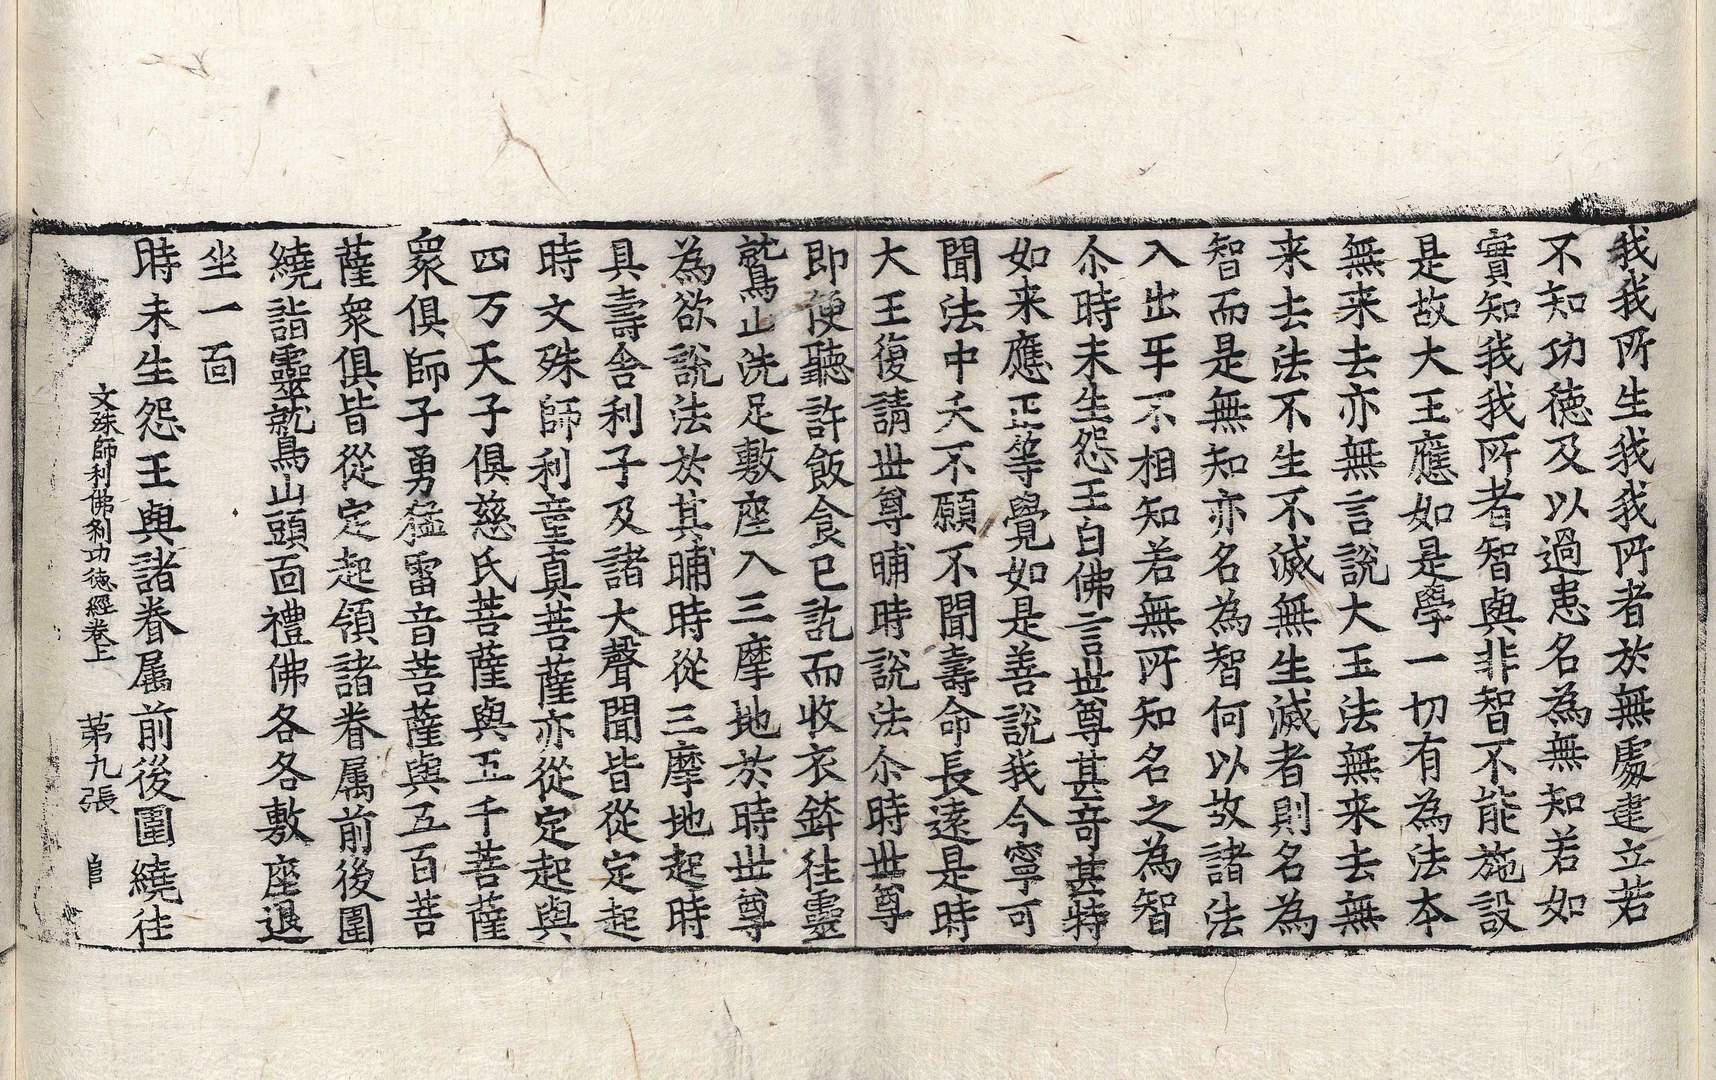 我我所生我我所者於無處建立若
不知功徳及以過患名為無知若如
實知我我所者智與非智不能施設
是故大王應如是學一切有為法夲
無来去亦無言說大王法無来去無
来去法不生不滅無生滅者則名為
智而是無知亦名為智何以故諸法
入出平不相知若無所知名之為智
尒時未生怨王白佛言世尊甚奇甚特
如来應正等覺如是善說我今寧可
聞法中夭不願不聞壽命長遠是時
大王復請世尊晡時說法尒時世尊
即便聽許飯食已訖而收衣鉢往靈
鷲山洗足敷座入三摩地於時世尊
為欲說法於其晡時從三摩地起時
具壽舍利子及諸大聲聞皆從定起
時文殊師利童真菩薩亦從定起與
四万天子俱慈氏菩薩與五千菩薩
衆俱師子勇猛雷音菩薩與五百菩
薩衆俱皆從定起領諸眷属前後圍
繞詣靈鷲山頭面禮佛各各敷座退
坐一面
時未生怨王與諸眷属前後圍繞往
文殊師利佛刹功徳經卷上 苐九張